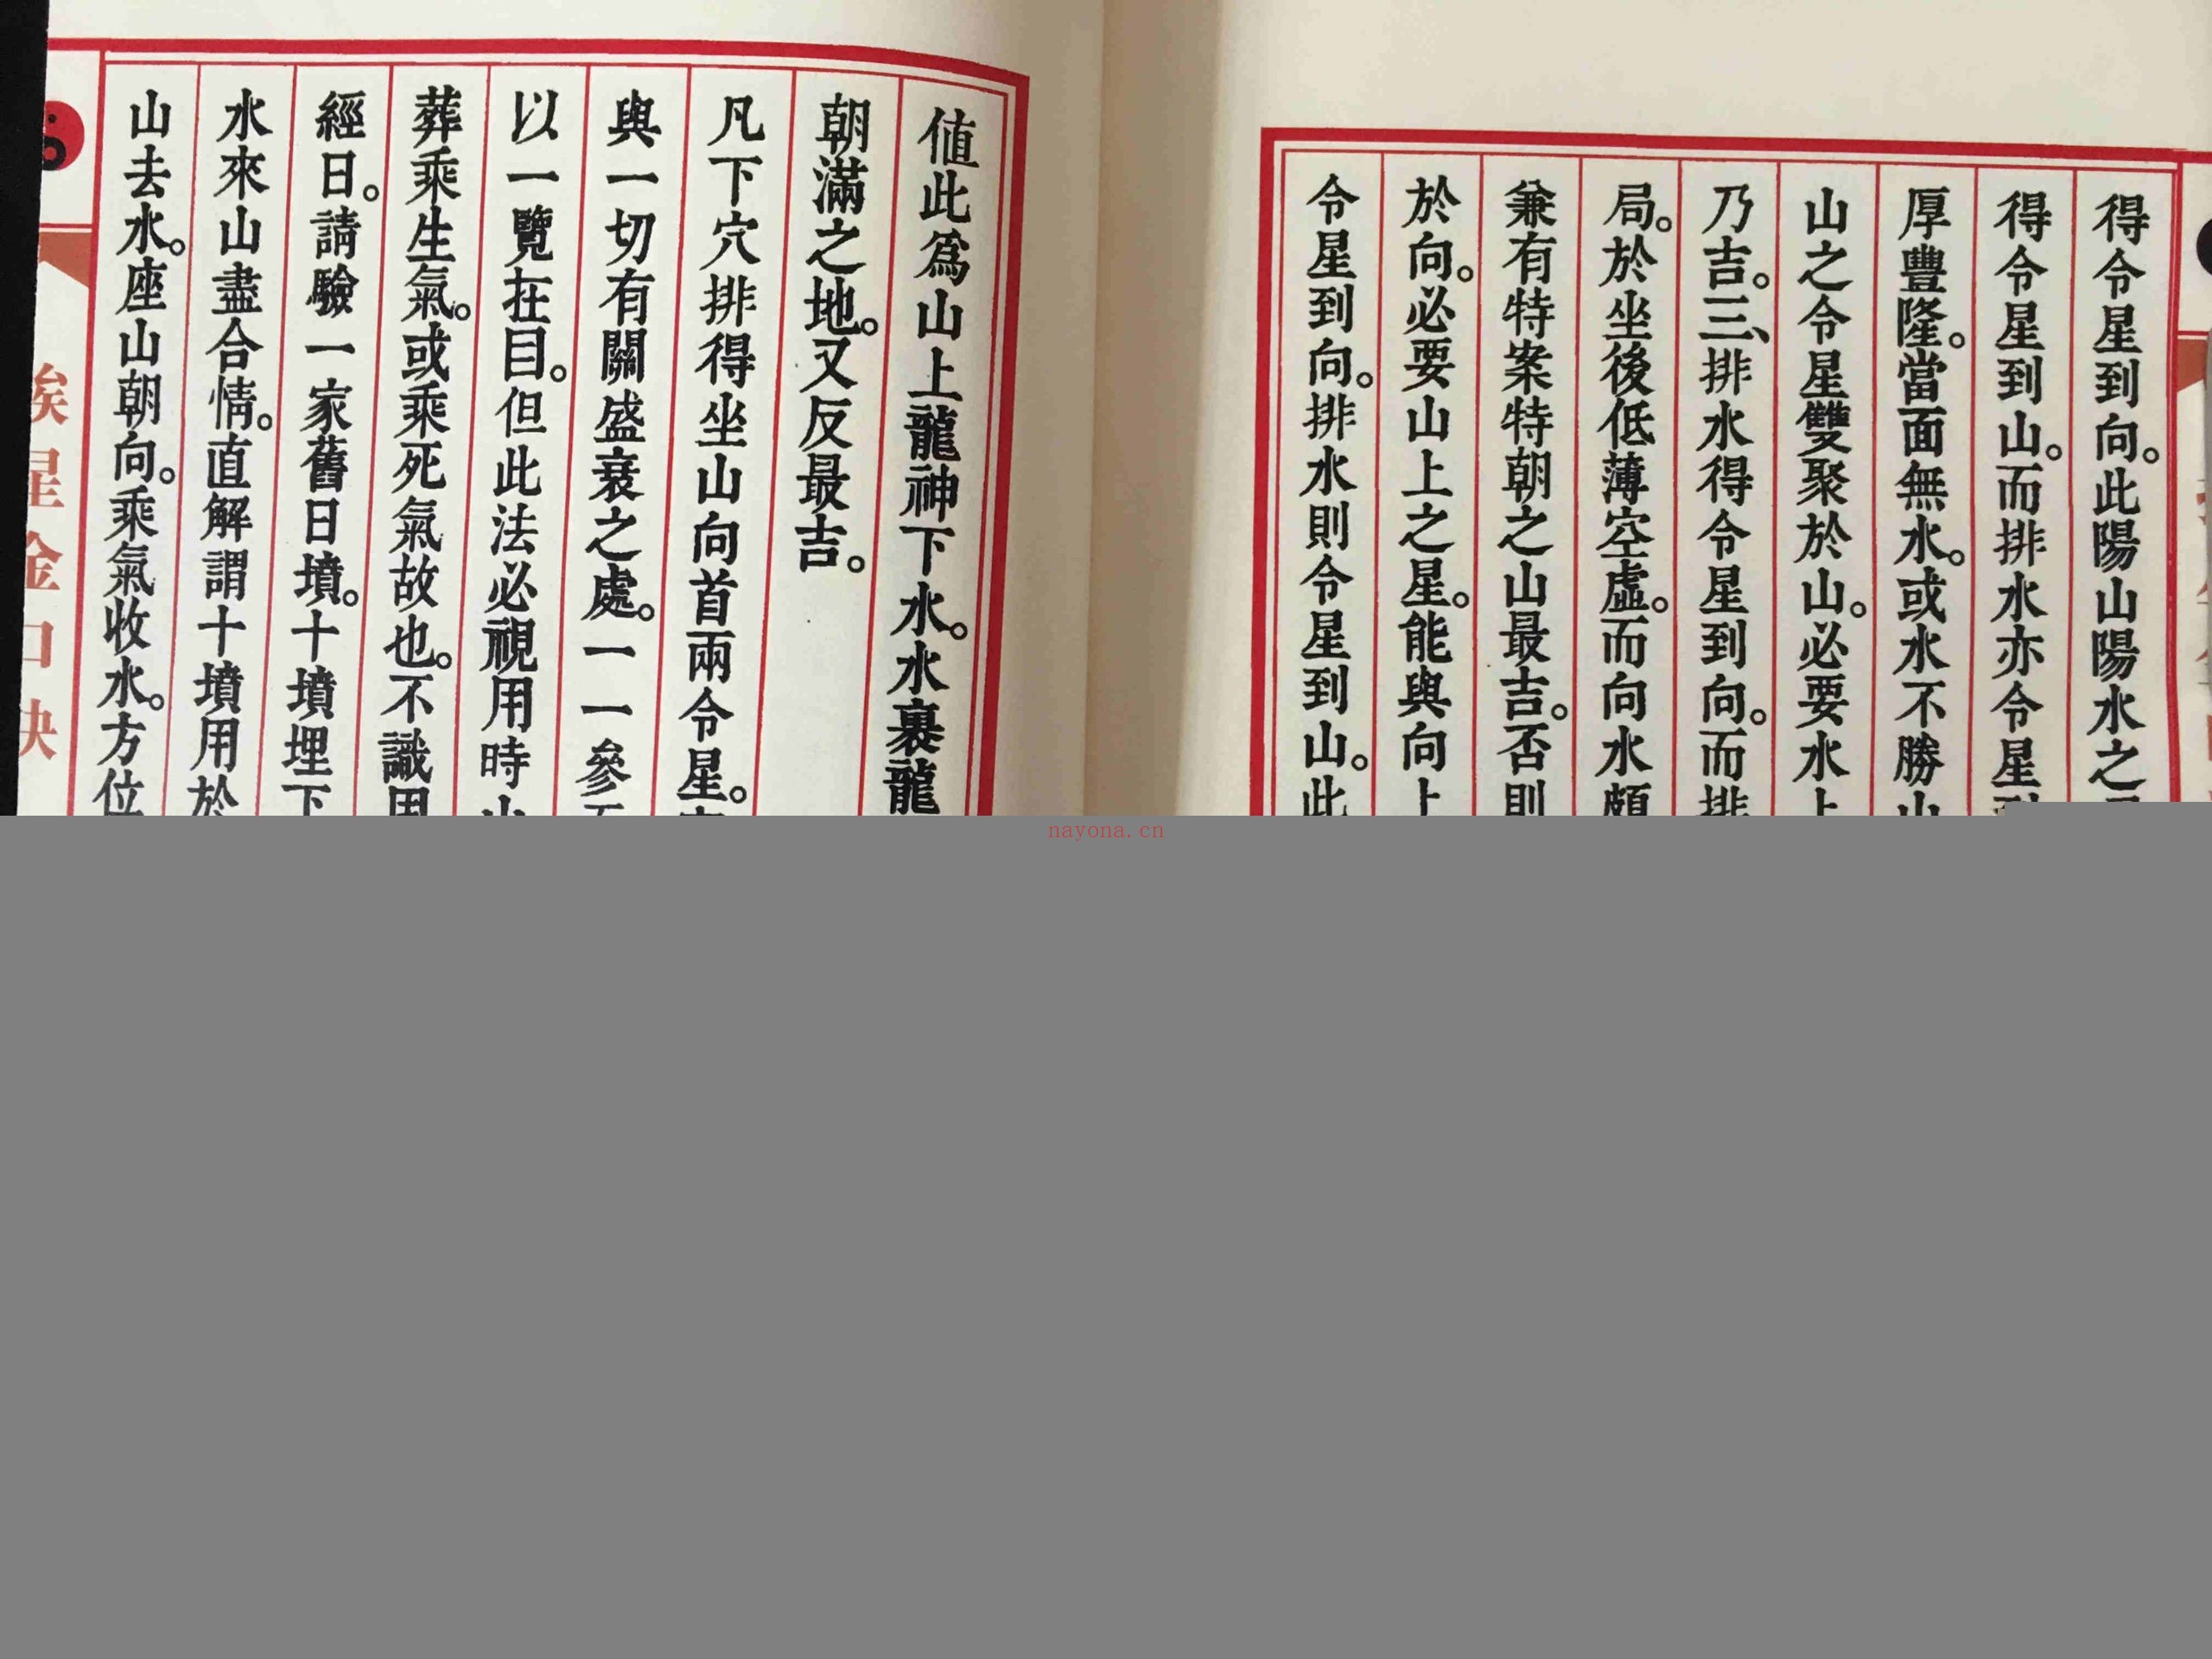 得令星到向。此陽山陽水之
得令星到山。而排水亦令星到
厚豐隆。當面無水。或水不勝山
山之令星雙聚於山。必要水上
乃吉。三、排水得令星到向。而排
局。於坐後低薄空虛。而向水頗
兼有特案特朝之山最吉。否則
於向。必要山上之星。能與向上
令星到向。排水則令星到山。此
值此爲山上龍神下水。水裏龍
朝滿之地。又反最吉。
凡下穴排得坐山向首兩令星。
與一切有關盛衰之處。一一參
以一覽在目。但此法必視用時
葬乘生氣。或乘死氣故也。不識用
經曰。請驗一家舊日墳。十墳埋下
水來山盡合情。直解謂十墳用於
山去水。座山朝向。乘氣收水。方位
挨星金口訣
nayona.cn